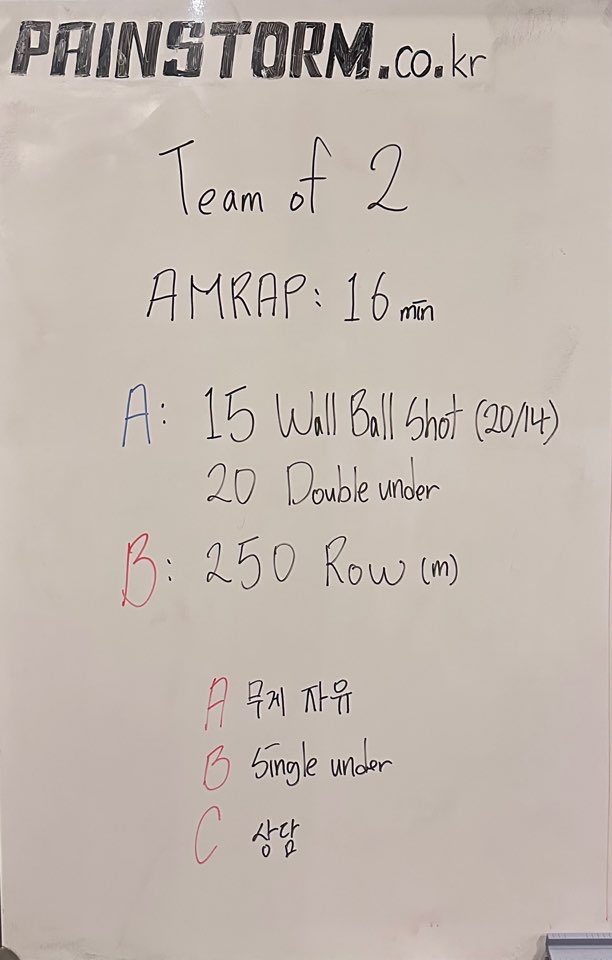 PAINSTORM.co.kr
Team of 2
AMRAP: 16 min
A: 15 Wall Ball Shot (20/14)
20 Double under
B: 250 Row (m)
A 무게 자유
B Single under
C 상담